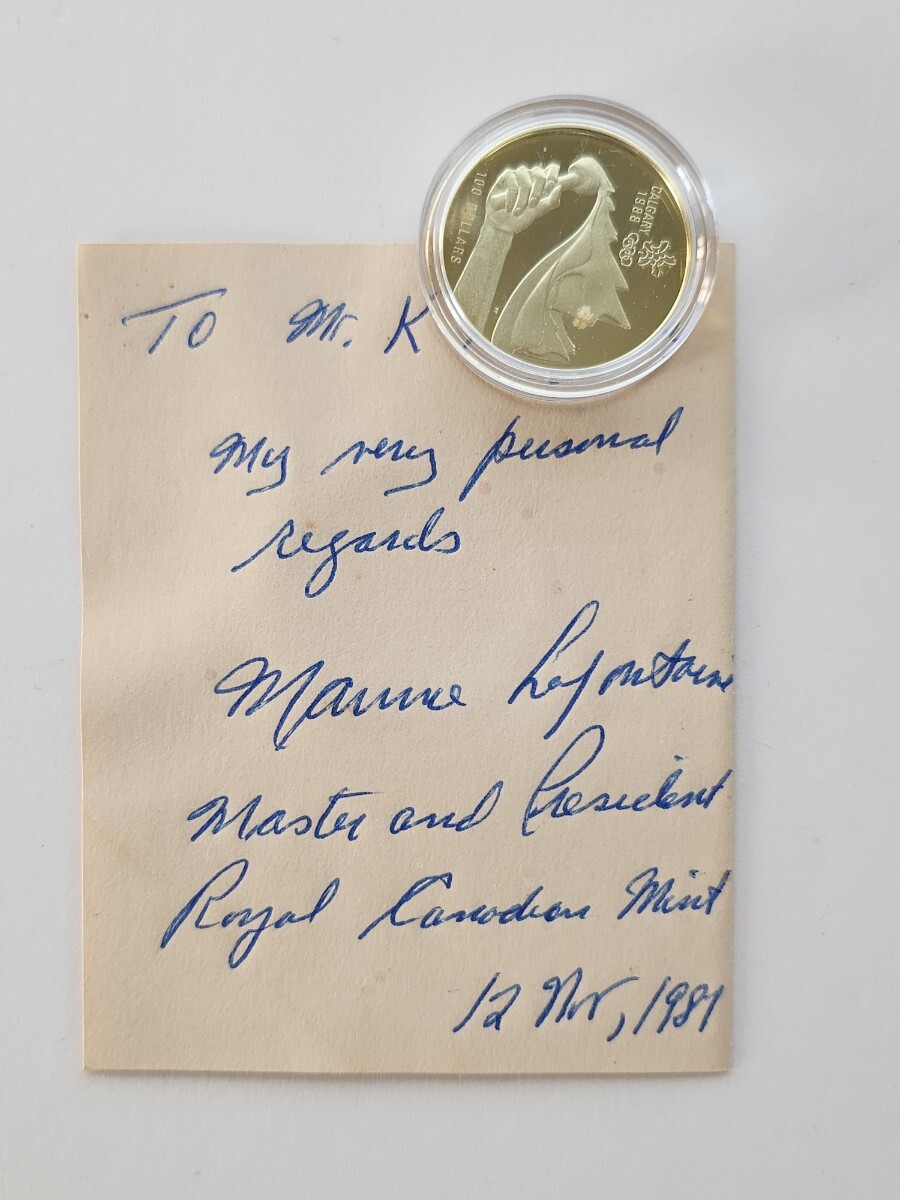 100 DOLLARS
CALGARY
1988
To Mr. K
My very personal
regards
Maurice Lafontaine
Master and President
Royal Canadian Mint
12 Nov, 1987